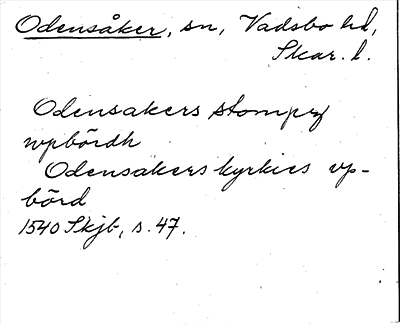 Odensåker, sn, Vadsbo hd,
Skar. l.
Odensakers stompn
wpbördh
Odensakers kyrkies vp-
börd
1540 Skjb, s. 47.